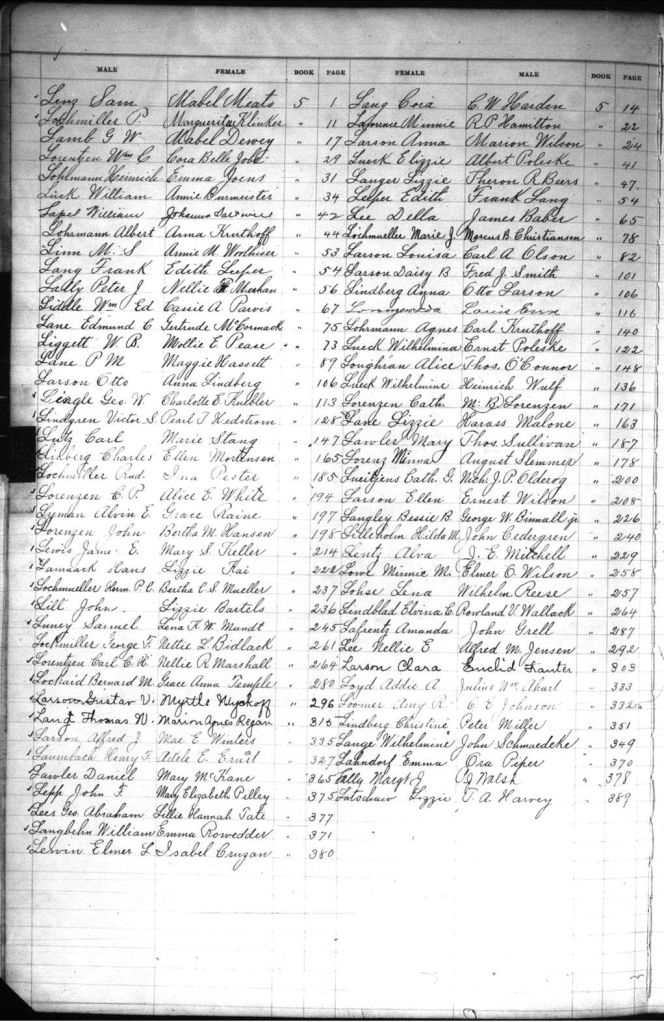 MALE FEMALE BOOK PAGE FEMALE MALE BOOK PAGE
Lenz Sam Mabel Meats 5 1 Lang Cora C. W. Harden 5 14
Lochmiller P Marguerite Klinker " 11 Lawrence Minnie R P Hamilton " 22
Lamb G W Mabel Dewey " 17 Larson Anna Marion Wilson " 24
Lorentzen Wm C Cora Belle " 29 Lueck Elizzie Albert Poleske " 41
Lohlmann Heinrich Emma Joens " 31 Langer Lizzie Theron R Beers " 47
Luck William Annie Burmeister " 34 Leeper Edith Frank Lang " 54
Lapel William Johanna " 42 Lee Della James Baber " 65
Lohrmann Albert Anna Kruthoff " 44 Lochmueller Marie J Marcus B. Christiansen " 78
Linn M. S Annie M. " 53 Larson Louisa Carl A Olson " 82
Lang Frank Edith Leeper " 54 Larson Daisy B Fred J. Smith " 101
Lally Peter J Nellie Meehan " 56 Lindberg Anna Otto Larson " 106
Liddle Wm Ed Carrie A Parvis " 67 Louis " 116
Lane Edmund C Gertrude McCormack " 75 Lohrmann Agnes Carl Kruthoff " 140
Liggett W. B. Mollie E Pease " 73 Lueck Wilhelmina Ernst Poleske " 122
Lane P M Maggie Hassett " 89 Loughran Alice Thos. O'Connor " 148
Larson Otto Anna Lindberg " 106 Lueck Wilhelmine Heinrich Wulf " 136
Lingle Geo W Charlotte E Kuebler " 113 Lorenzen Cath. M. B. Lorenzen " 171
Lindgren Victor S. Pearl T Hedstrom " 128 Lane Lizzie Harass Malone " 163
Lutz Carl Marie Stang " 147 Lawler Mary Thos. Sullivan " 187
Linberg Charles Ellen Mortensen " 165 Lorenz Minna August Slemmer " 178
Lochmiller Rud. Ina Pester " 185 Cath. G. Nich. J. P. Olderog " 200
Lorenzen C. P. Alice E. White " 194 Larson Ellen Ernest Wilson " 208
Lyman Alvin E. Grace Raine " 197 Langley Bessie B. George W. Binnall jr " 226
Lorenzen John Bertha M. Hansen " 198 Lilleholm Hilda M. John Cedergren " 240
Lewis James E. Mary S. Keller " 214 Lentz Alva J. E. Mitchell " 229
Lamarck Hans Lizzie Kai " 222 Lowe Minnie M. Elmer O. Wilson " 258
Lochmueller Herm P. C. Bertha E. S. Mueller " 237 Lohse Lena Wilhelm Reese " 257
Lill John. Lizzie Bartels " 236 Lindblad Elvina C. Rowland V. Wallack " 264
Luney Samuel Lena K. W. Mundt " 245 Lafrentz Amanda John Grell " 287
Lochmiller George F. Nettie L. Bidlack " 261 Lee Nellie E Alfred M. Jensen " 292
Lorentzen Carl C. H. Nellie R. Marshall " 264 Larson Clara Euclid Sauter " 303
Lockard Bernard M. Grace Anna Temple " 280 Loyd Addie A Julius Wm. Ahart " 333
Larson Gustav V. Myrtle Wyckoff " 296 Loomer Amy R. C. E Johnson " 332
Lang Thomas W. Marion Agnes Regan " 315 Lindberg Christine Peter Miller " 351
Larson Alfred J Mae E Winters " 335 Lange Wilhelmine John Schmaedeke " 349
Laumbach Henry F. Adele E. Ernst " 327 Lahndorf Emma Ora Piper " 370
Lawler Daniel Mary McKane " 365 Lally Margt J Walsh " 378
Lepp John F. Mary Elizabeth Pilley " 375 Latschaw Lizzie T. A. Harvey " 389
Lees Geo. Abraham Lillie Hannah Tate " 377
Langbehn William Emma Rowedder " 371
Lewin Elmer L Isabel Cruzan " 380